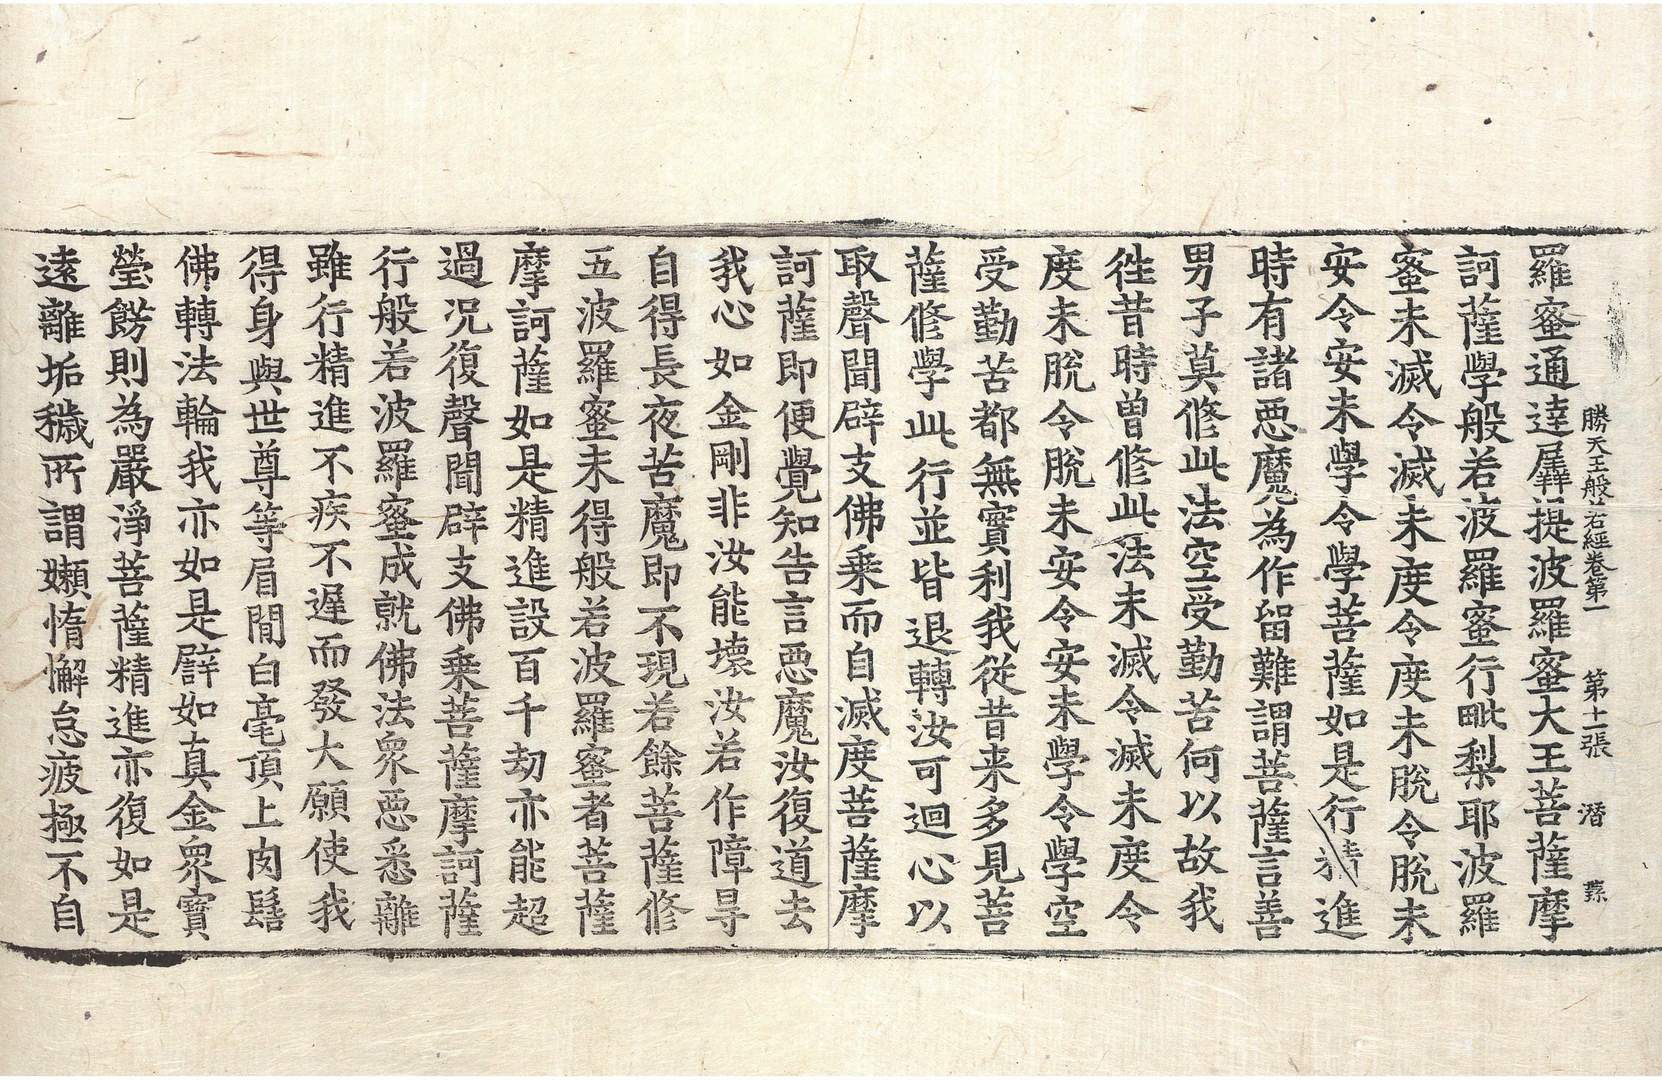 勝天王般若經卷第一 第十一張 潛
羅蜜通達羼提波羅蜜大王菩薩摩
訶薩學般若波羅蜜行毗梨耶波羅
蜜未滅令滅未度令度未脫令脫未
安令安未學令學菩薩如是行精進
時有諸惡魔為作留難謂菩薩言善
男子莫修此法空受勤苦何以故我
往昔時曾修此法未滅令滅未度令
度未脫令脫未安令安未學令學空
受勤苦都無實利我從昔来多見菩
薩修學此行並皆退轉汝可迴心以
取聲聞辟支佛乗而自滅度菩薩摩
訶薩即便覺知告言惡魔汝復道去
我心如金剛非汝能壞汝若作障㝵
自得長夜苦魔即不現若餘菩薩修
五波羅蜜未得般若波羅蜜者菩薩
摩訶薩如是精進設百千劫亦能超
過况復聲聞辟支佛乗菩薩摩訶薩
行般若波羅蜜成就佛法衆惡悉離
雖行精進不疾不遲而發大願使我
得身與世尊等眉間白毫頂上肉髻
佛轉法輪我亦如是譬如真金衆寶
瑩餝則為嚴淨菩薩精進亦復如是
遠離垢穢所謂嬾惰懈怠疲極不自